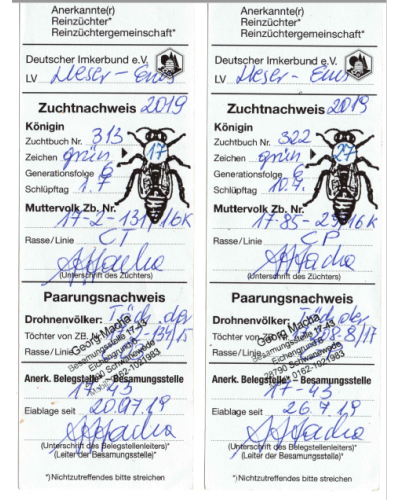 Anerkannte(r)
Reinzüchter*
Reinzüchtergemeinschaft*
Deutscher Imkerbund e.V.
LV Weser-Ems
Zuchtnachweis 2019
Königin
Zuchtbuch Nr. 313
Zeichen grün 17
Generationsfolge 6
Schlüpftag 1.7
Muttervolk Zb. Nr.
17-2-131/16K
Rasse/Linie CT
(Unterschrift des Züchters)
Paarungsnachweis
Drohnenvölker:
Töchter von ZB. N
Rasse/Linie
Georg Macha
Besamungsstelle 17-43
Eichengrund 6
28790 Schwanewede
0162-1021983
Anerk. Belegstelle* – Besamungsstelle
17-43
Eiablage seit 20.07.19
(Unterschrift des Belegstellenleiters)*
(Leiter der Besamungsstelle)*
*) Nichtzutreffendes bitte streichen
Anerkannte(r)
Reinzüchter*
Reinzüchtergemeinschaft*
Deutscher Imkerbund e.V.
LV Weser-Ems
Zuchtnachweis 2019
Königin
Zuchtbuch Nr. 322
Zeichen grün 27
Generationsfolge 6
Schlüpftag 10.7.
Muttervolk Zb. Nr.
Rasse/Linie CP
(Unterschrift des Züchters)
Paarungsnachweis
Drohnenvölker:
Töchter von ZB.
Rasse/Linie
Georg Macha
Besamungsstelle 17-43
Eichengrund 6
28790 Schwanewede
0162-1021983
Anerk. Belegstelle* – Besamungsstelle
17-43
Eiablage seit 26.7.19
(Unterschrift des Belegstellenleiters)*
(Leiter der Besamungsstelle)*
*) Nichtzutreffendes bitte streichen